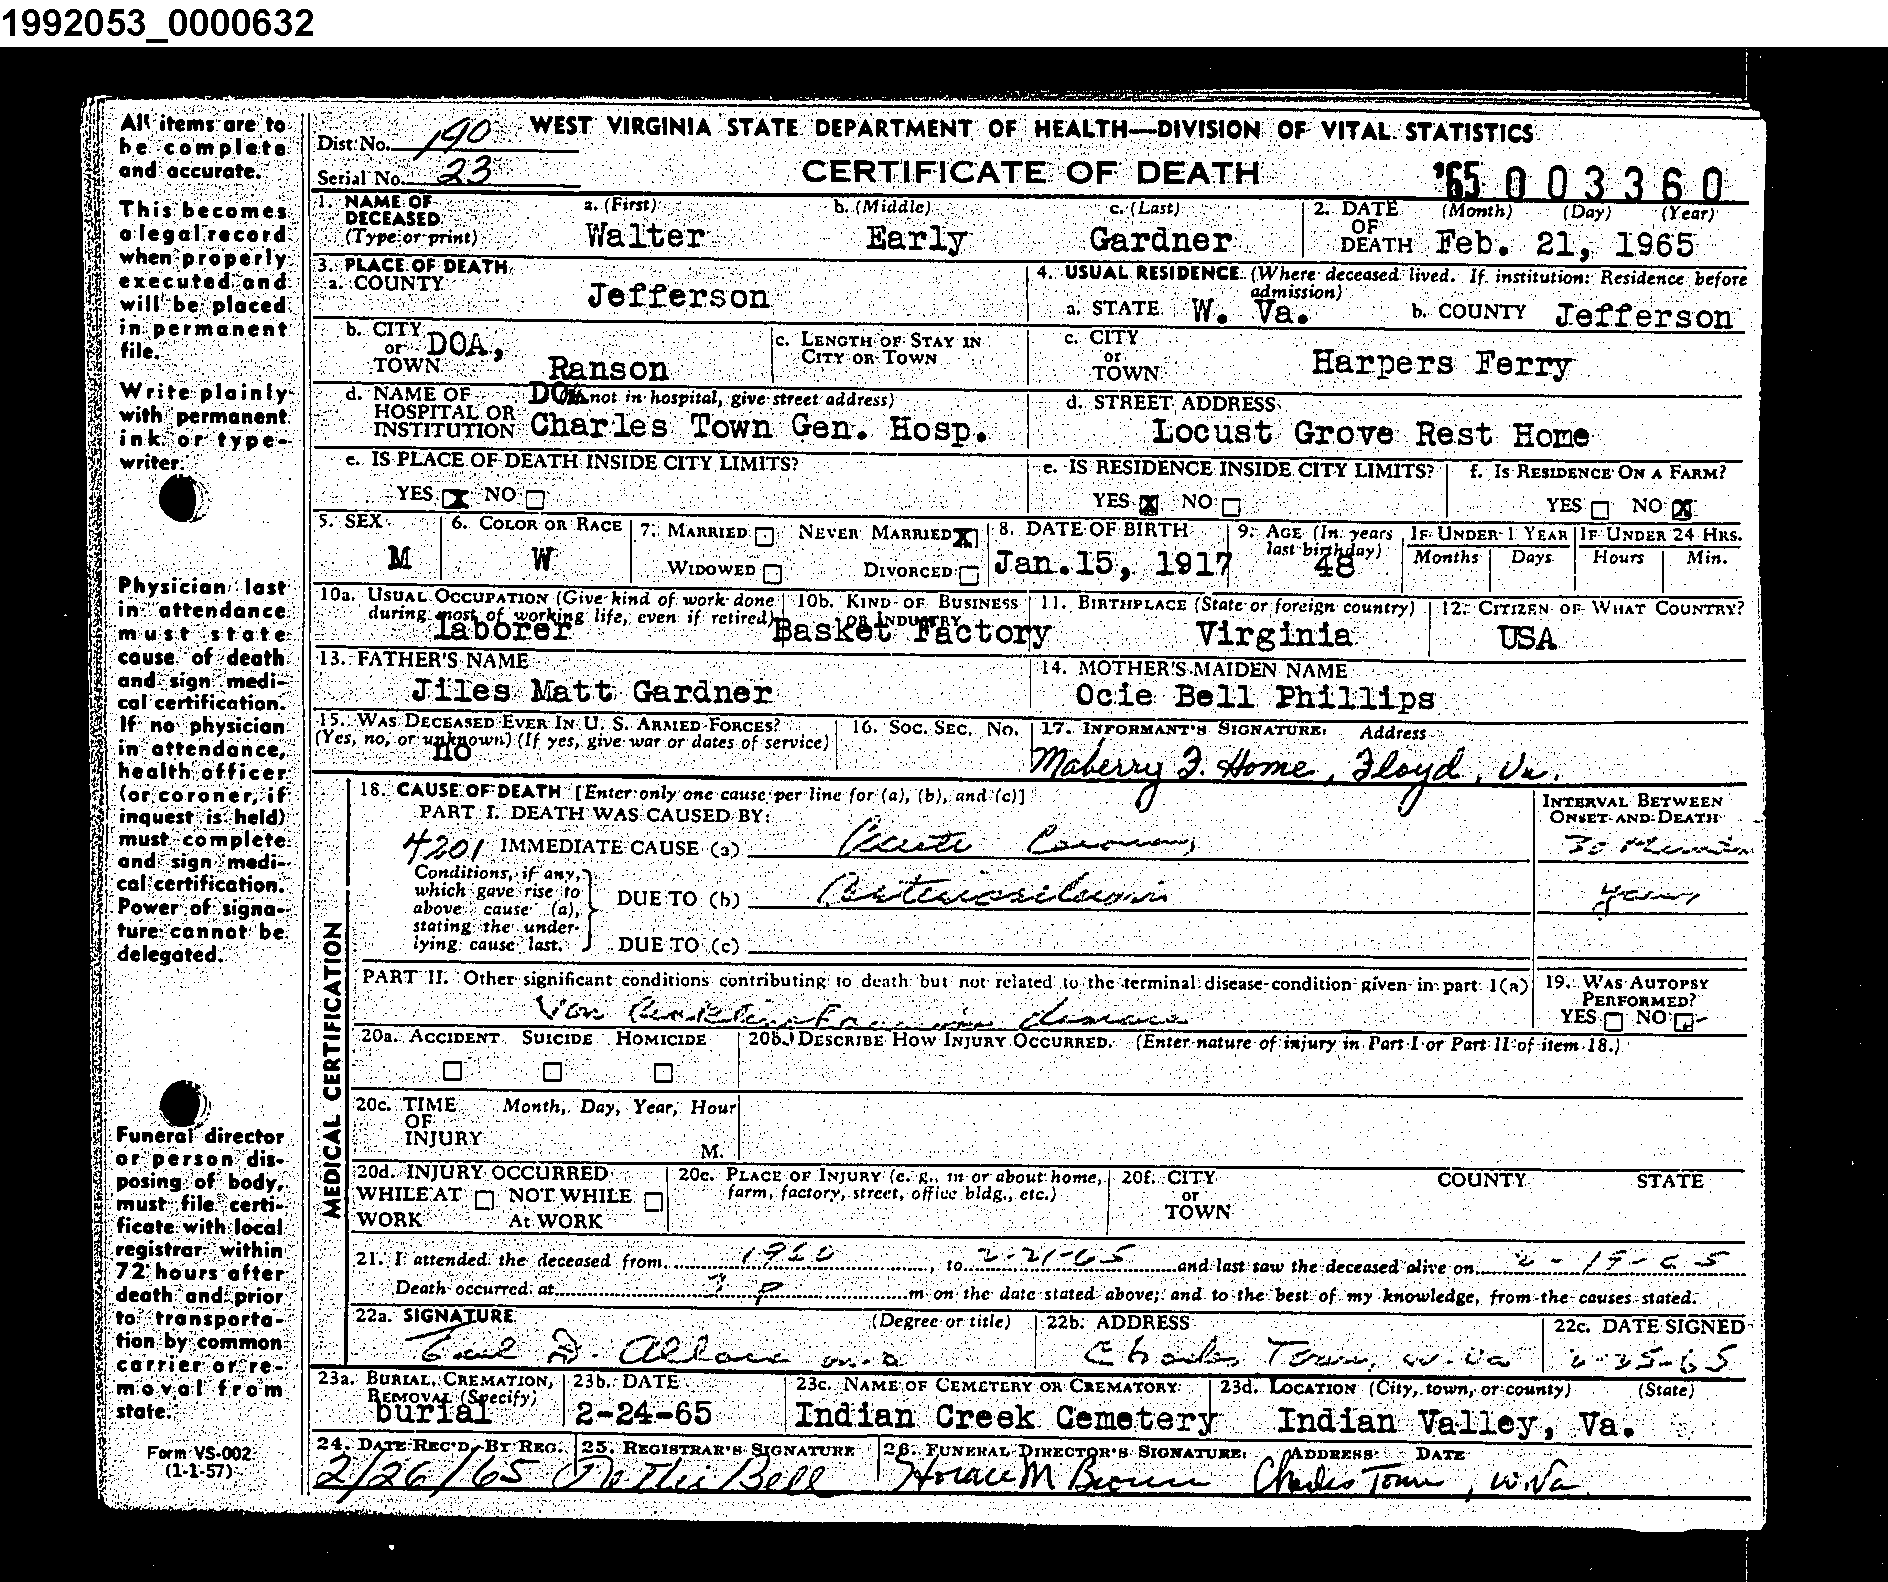 1992053_0000632
All items are to
be complete
and accurate.
This becomes
a legal record
when properly
executed and
will be placed
in permanent
file.
Write plainly
with permanent
ink or type-
writer.
Physician last
in attendance
must state
cause of death
and sign medi-
cal certification.
If no physician
in attendance,
health officer
(or coroner, if
inquest is held)
must complete
and sign medi-
cal certification.
Power of signa-
ture cannot be
delegated.
Funeral director
or person dis-
posing of body,
must file certi-
ficate with local
registrar within
72 hours after
death and prior
to transporta-
tion by common
carrier or re-
moval from
state.
Form VS-002
(1-1-57)
Dist. No. 190 WEST VIRGINIA STATE DEPARTMENT OF HEALTH—DIVISION OF VITAL STATISTICS
Serial No. 23 CERTIFICATE OF DEATH '65 003360
1. NAME OF DECEASED (Type or print) a. (First) b. (Middle) c. (Last) 2. DATE OF DEATH (Month) (Day) (Year)
Walter Early Gardner Feb. 21, 1965
3. PLACE OF DEATH 4. USUAL RESIDENCE (Where deceased lived. If institution: Residence before admission)
a. COUNTY Jefferson a. STATE W. Va. b. COUNTY Jefferson
b. CITY or TOWN DOA, Ranson c. LENGTH OF STAY IN CITY OR TOWN c. CITY or TOWN Harpers Ferry
d. NAME OF HOSPITAL OR INSTITUTION DOA not in hospital, give street address) d. STREET ADDRESS
Charles Town Gen. Hosp. Locust Grove Rest Home
e. IS PLACE OF DEATH INSIDE CITY LIMITS? e. IS RESIDENCE INSIDE CITY LIMITS? f. IS RESIDENCE ON A FARM?
YES X NO YES X NO YES NO X
5. SEX 6. COLOR OR RACE 7. MARRIED NEVER MARRIED X 8. DATE OF BIRTH 9. AGE (In years last birthday) IF UNDER 1 YEAR IF UNDER 24 HRS.
M W WIDOWED DIVORCED Jan.15, 1917 48 Months Days Hours Min.
10a. USUAL OCCUPATION (Give kind of work done during most of working life, even if retired) 10b. KIND OF BUSINESS OR INDUSTRY 11. BIRTHPLACE (State or foreign country) 12. CITIZEN OF WHAT COUNTRY?
laborer Basket Factory Virginia USA
13. FATHER'S NAME 14. MOTHER'S MAIDEN NAME
Jiles Matt Gardner Ocie Bell Phillips
15. WAS DECEASED EVER IN U. S. ARMED FORCES? 16. SOC. SEC. NO. 17. INFORMANT'S SIGNATURE Address
(Yes, no, or unknown) (If yes, give war or dates of service)
no Maberry F. Home, Floyd, Va.
MEDICAL CERTIFICATION
18. CAUSE OF DEATH [Enter only one cause per line for (a), (b), and (c)] INTERVAL BETWEEN ONSET AND DEATH
PART I. DEATH WAS CAUSED BY:
4201 IMMEDIATE CAUSE (a) Acute Coronary 30 Minutes
Conditions, if any, which gave rise to above cause (a), stating the under-lying cause last.
DUE TO (b) Arteriosclerosis years
DUE TO (c)
PART II. Other significant conditions contributing to death but not related to the terminal disease condition given in part 1(a) 19. WAS AUTOPSY PERFORMED?
Von Recklinghausen disease YES NO
20a. ACCIDENT SUICIDE HOMICIDE 20b. DESCRIBE HOW INJURY OCCURRED. (Enter nature of injury in Part I or Part II of item 18.)
20c. TIME OF INJURY Month, Day, Year, Hour
M.
20d. INJURY OCCURRED 20e. PLACE OF INJURY (e. g., in or about home, farm, factory, street, office bldg., etc.) 20f. CITY or TOWN COUNTY STATE
WHILE AT WORK NOT WHILE At WORK
21. I attended the deceased from 1960, to 2-21-65 and last saw the deceased alive on 2-19-65
Death occurred at 3 P m on the date stated above; and to the best of my knowledge, from the causes stated.
22a. SIGNATURE (Degree or title) 22b. ADDRESS 22c. DATE SIGNED
D. M.D Charles Town, W. Va 2-25-65
23a. BURIAL, CREMATION, REMOVAL (Specify) 23b. DATE 23c. NAME OF CEMETERY OR CREMATORY 23d. LOCATION (City, town, or county) (State)
burial 2-24-65 Indian Creek Cemetery Indian Valley, Va.
24. DATE REC'D BY REG. 25. REGISTRAR'S SIGNATURE 26. FUNERAL DIRECTOR'S SIGNATURE ADDRESS DATE
2/26/65 Nettie Bell Horace M Brown Charles Town, W.Va.